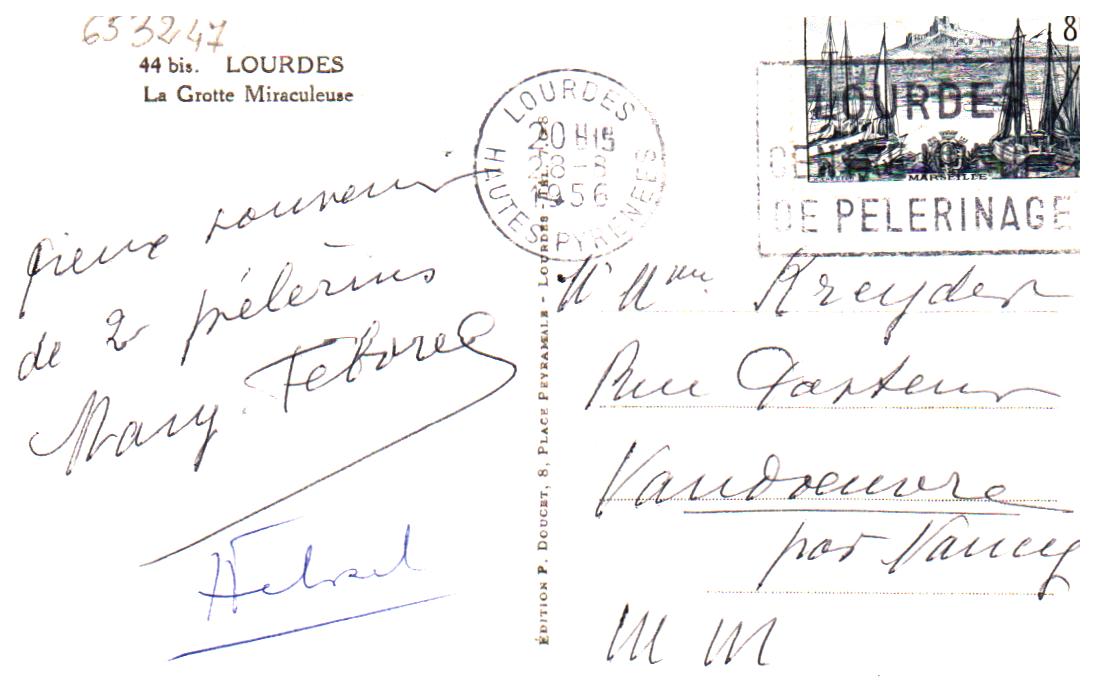 653247
44 bis. LOURDES
La Grotte Miraculeuse
pieux souvenir
de 2 pélerins
Mary. Feborel
Febrel
ÉDITION P. DOUCET, 8, PLACE PEYRAMALE - LOURDES -
LOURDES
20 H 15
28-8
1956
HAUTES PYRENEES
8
MARSEILLE
LOURDES
DE PELERINAGE
Mr Mme Kreyder
Rue Pasteur
Vandoeuvre
par Nancy
M M